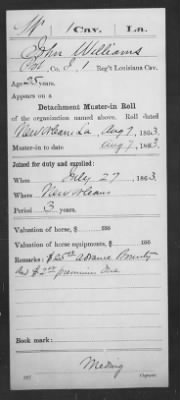 1 Cav. La.
John Williams
Co. I, 1 Reg't Louisiana Cav.
Age 25 years.
Appears on a
Detachment Muster-in Roll
of the organization named above. Roll dated
New Orleans La, Aug 7, 1863
Muster-in to date Aug 7, 1863
Joined for duty and enrolled:
When July 27, 1863
Where New Orleans
Period 3 years.
Valuation of horse, $ 100
Valuation of horse equipments, $ 100
Remarks: $25.00 advance Bounty
and $2.00 premium due
Book mark:
Copyist.